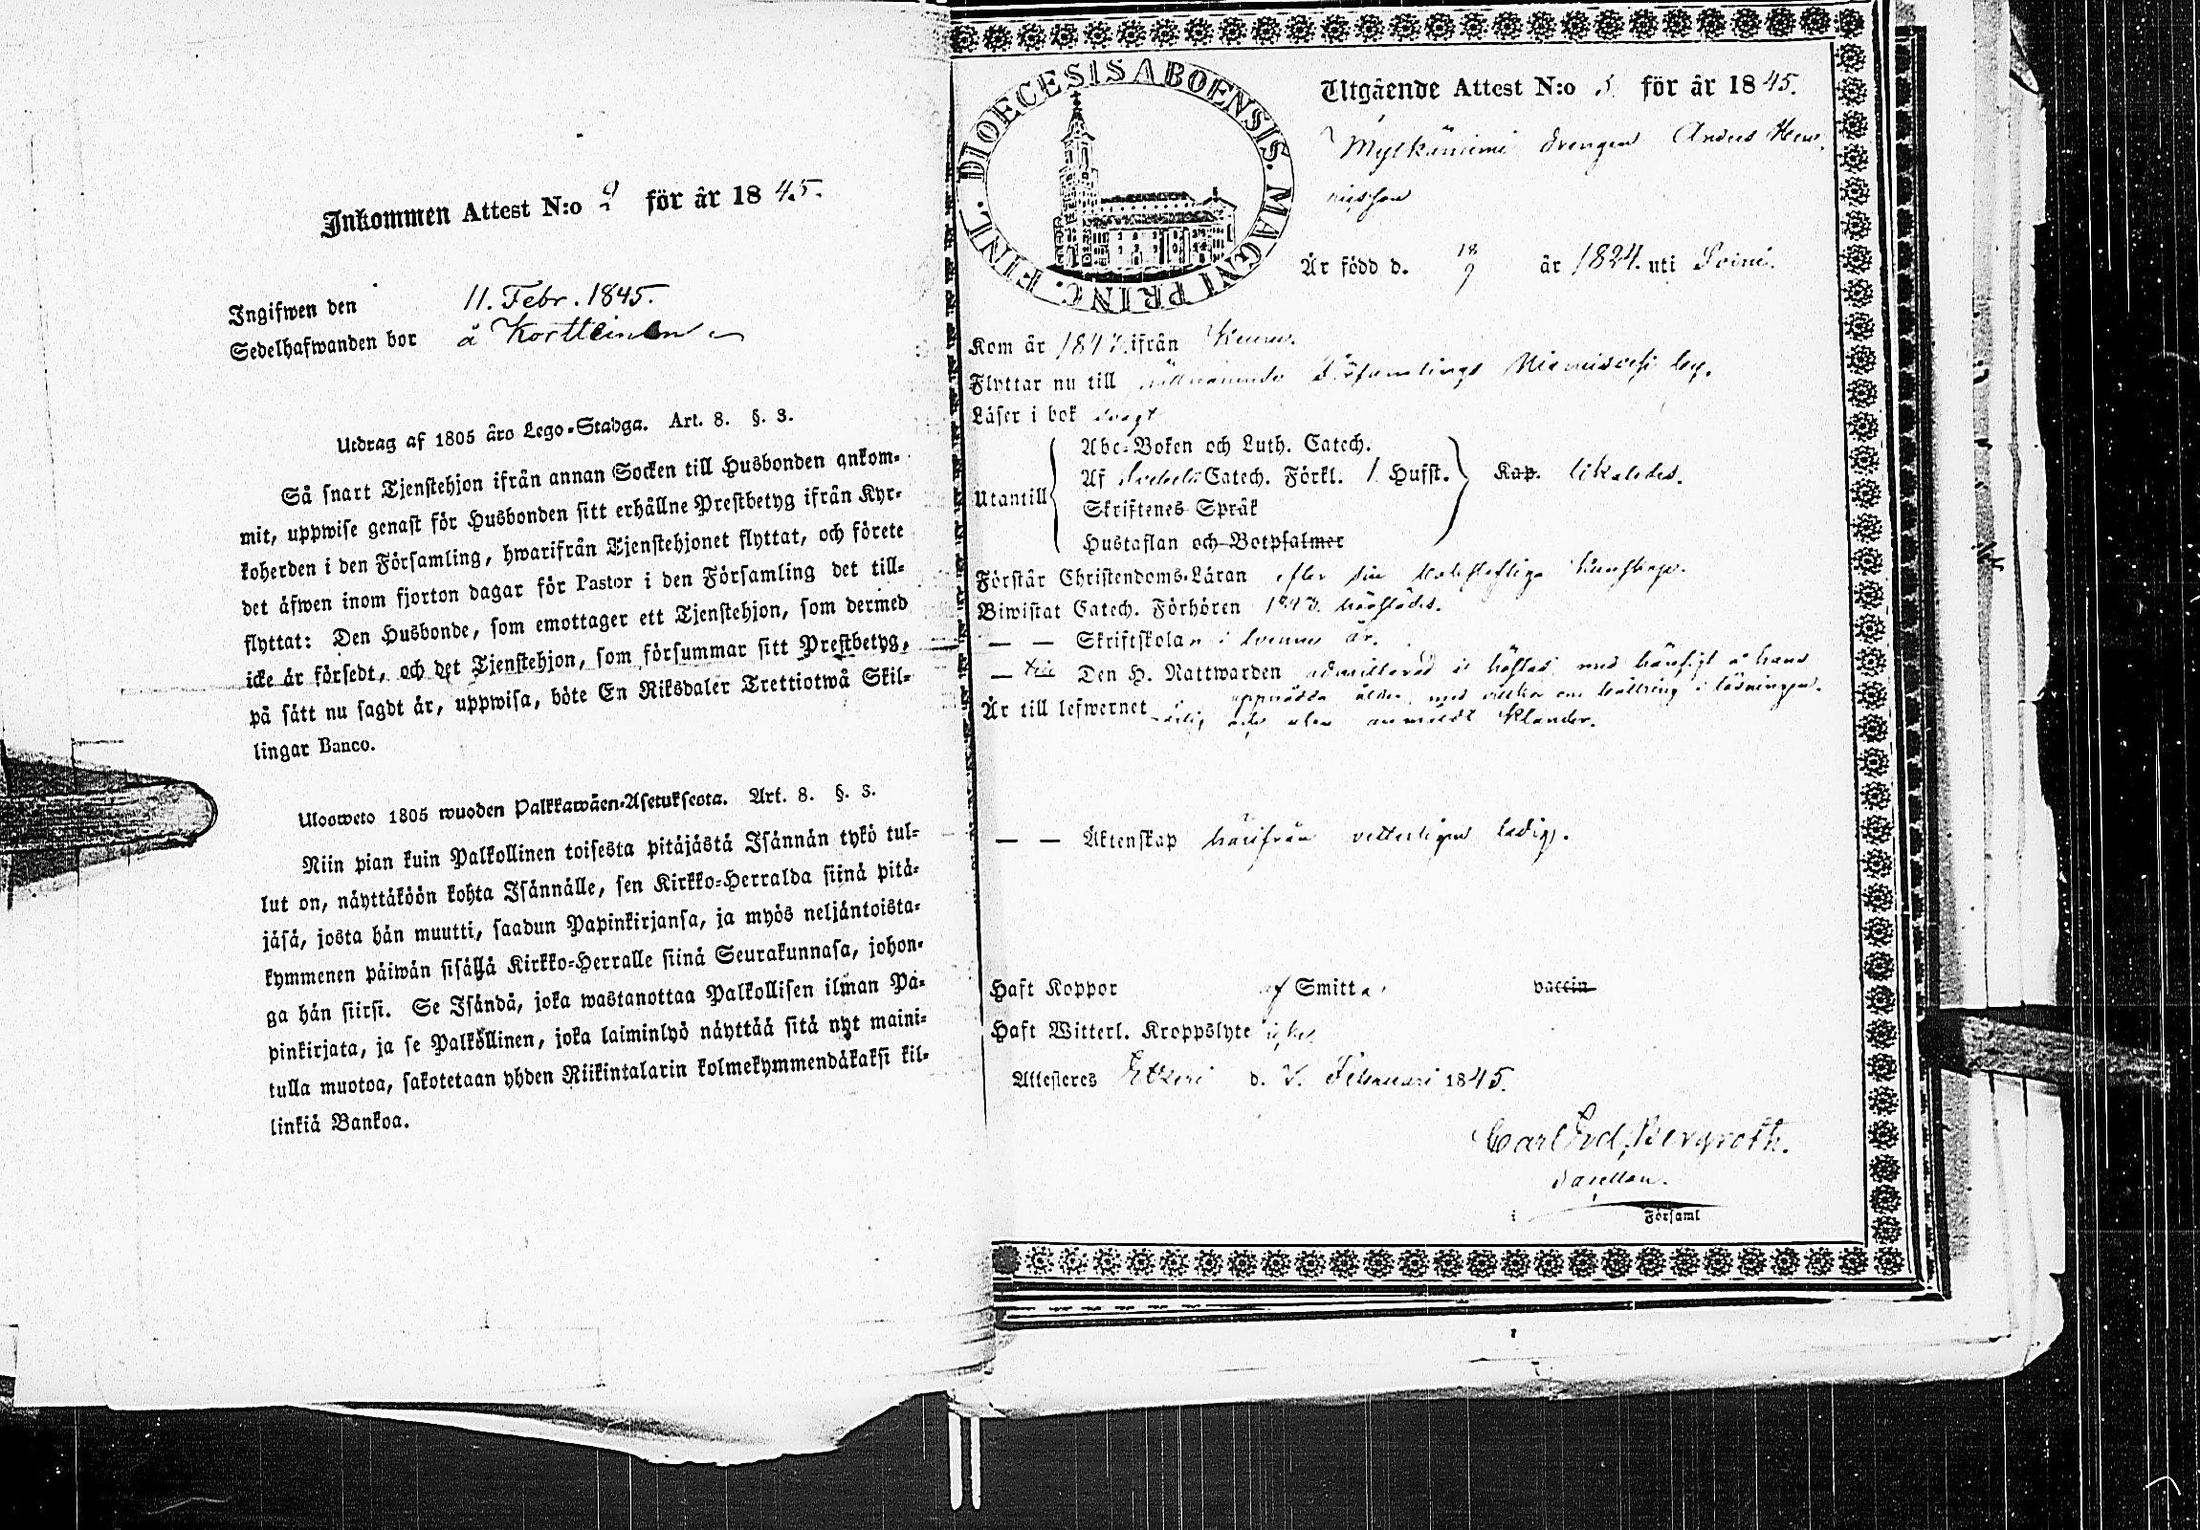 Inkommen Attest N:o 9 för år 1845.
Ingifwen den 11. Febr. 1845.
Sedelhafwanden bor å Kortteinen
Utdrag af 1805 åro Lego-Stadga. Art. 8. §. 3.
Så snart Tjenstehjon ifrån annan Socken till Husbonden ankom-
mit, uppwise genast för Husbonden sitt erhållne Prestbetyg ifrån Kyr-
koherden i den Församling, hwarifrån Tjenstehjonet flyttat, och förete
det äfwen inom fjorton dagar för Pastor i den Församling det till-
flyttat: Den Husbonde, som emottager ett Tjenstehjon, som dermed
icke är försedt, och det Tjenstehjon, som försummar sitt Prestbetyg,
på sätt nu sagdt är, uppwisa, böte En Riksdaler Trettiotwå Skil-
lingar Banco.
Ulosweto 1805 wuoden Palkkawäen-Asetuksesta. Art. 8. §. 3.
Niin pian kuin Palkollinen toisesta pitäjästä Isännän tykö tul-
lut on, näyttäköön kohta Isännälle, sen Kirkko-Herralda siinä pitä-
jäsä, josta hän muutti, saadun Papinkirjansa, ja myös neljäntoista-
kymmenen päiwän sisällä Kirkko-Herralle siinä Seurakunnasa, johon-
ga hän siirsi. Se Isändä, joka wastanottaa Palkollisen ilman Pa-
pinkirjata, ja se Palkollinen, joka laiminlyö näyttää sitä nyt maini-
tulla muotoa, sakotetaan yhden Riikintalarin kolmekymmendäkaksi kil-
linkiä Bankoa.
DIOECESIS ABOENSIS. MAGNI PRINC. FINL.
Utgående Attest N:o 5 för år 1845.
Mylkäniemi drengen Anders Hen-
riksson
Är född d. 18/9 år 1824. uti Soini.
Kom år 1843. ifrån Keuru.
Flyttar nu till Församlings Niemisvesi by.
Läser i bok svagt
Utantill
Abc-Boken och Luth. Catech.
Af Catech. Förkl. 1 Hufst. Kap. likaledes.
Skriftenes Språk
Hustaflan och Botpsalmer
Förstår Christendoms-Läran efter sin bokstafliga kunskap.
Biwistat Catech. Förhören 1843. härstädes.
— — Skriftskolan i tvenne år.
— Den H. Nattwarden admitterad i höstas med hänsigt å hans
uppnådda ålder, med villkor om bättring i läsningen.
Är till lefwernet ärlig och utan anmärkt klander.
— — Äktenskap härifrån vetterligen ledig.
Haft Koppor af Smitta. vaccin
Haft Witterl. Kroppslyte icke
Attesteres Etseri d. 7. Februari 1845.
Carl Fred. Bergroth.
Sacellan.
i Församl